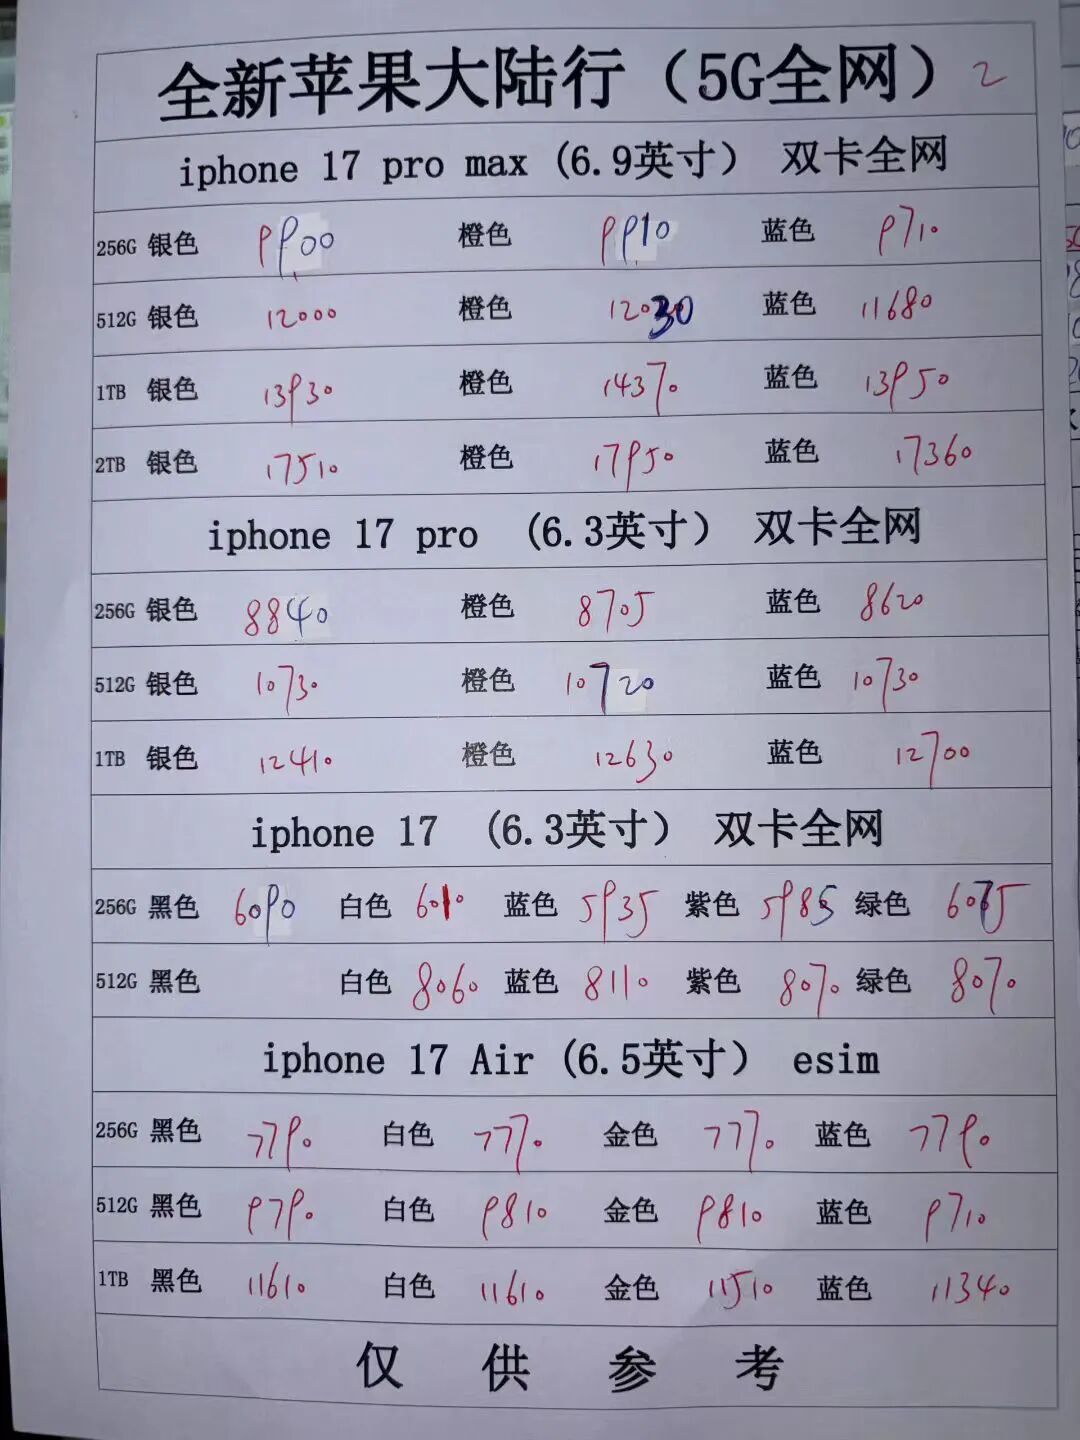 全新苹果大陆行（5G全网）2
iphone 17 pro max（6.9英寸） 双卡全网
256G 银色 9900 橙色 9910 蓝色 9710
512G 银色 12000 橙色 12030 蓝色 11680
1TB 银色 13930 橙色 14370 蓝色 13950
2TB 银色 17510 橙色 17950 蓝色 17360
iphone 17 pro （6.3英寸） 双卡全网
256G 银色 8840 橙色 8705 蓝色 8620
512G 银色 10730 橙色 10720 蓝色 10730
1TB 银色 12410 橙色 12630 蓝色 12700
iphone 17 （6.3英寸） 双卡全网
256G 黑色 6090 白色 6010 蓝色 5935 紫色 5985 绿色 6075
512G 黑色 白色 8060 蓝色 8110 紫色 8070 绿色 8070
iphone 17 Air（6.5英寸） esim
256G 黑色 7790 白色 7770 金色 7770 蓝色 7790
512G 黑色 9790 白色 9810 金色 9810 蓝色 9710
1TB 黑色 11610 白色 11610 金色 11510 蓝色 11340
仅供参考